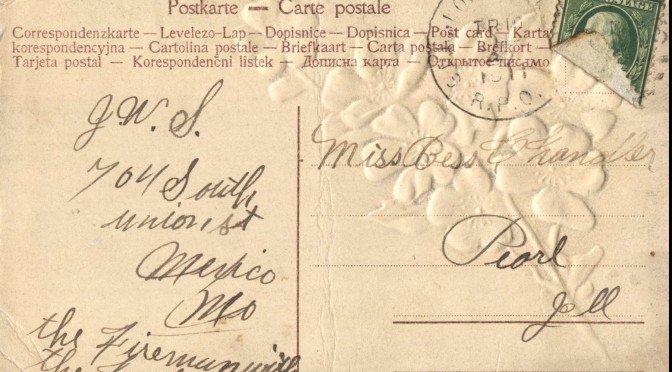 Postkarte — Carte postale
Correspondenzkarte — Levelezo-Lap — Dopisnice — Dopisnica — Post card — Karta
korespondencyjna — Cartolina postale — Briefkaart — Carta postala — Brefkort —
Tarjeta postal — Korespondenčni listek — Дописна карта — Открытое письмо
TRIP
R.P.O.
POSTAGE
J.W.S.
704 South
union st
Mexico
Mo
the Fireman with
the
Miss Bess Chandler
Pearl
Ill